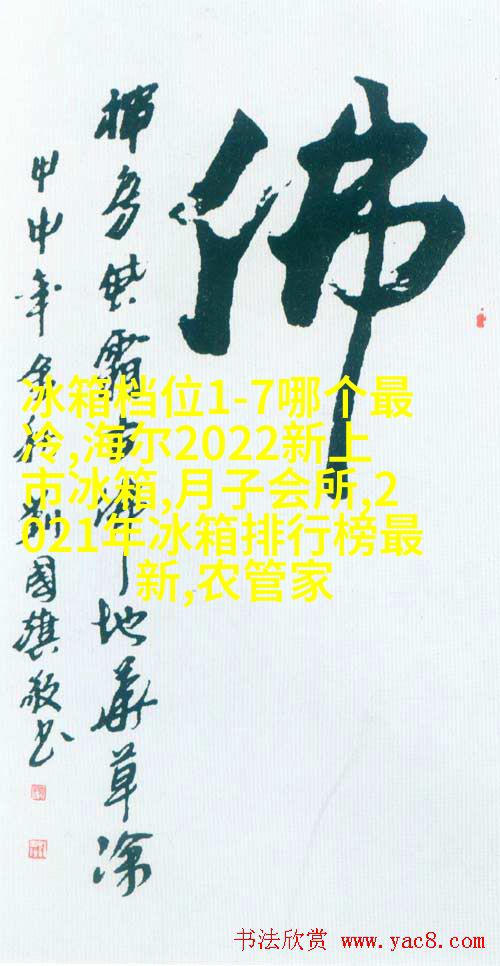 佛
霜 地 華 草 深
甲申年 國旗敬书
冰箱档位1-7哪个最
冷,海尔2022新上
市冰箱,月子会所,2
021年冰箱排行榜最
新,农管家
书法欣赏 www.yac8.com